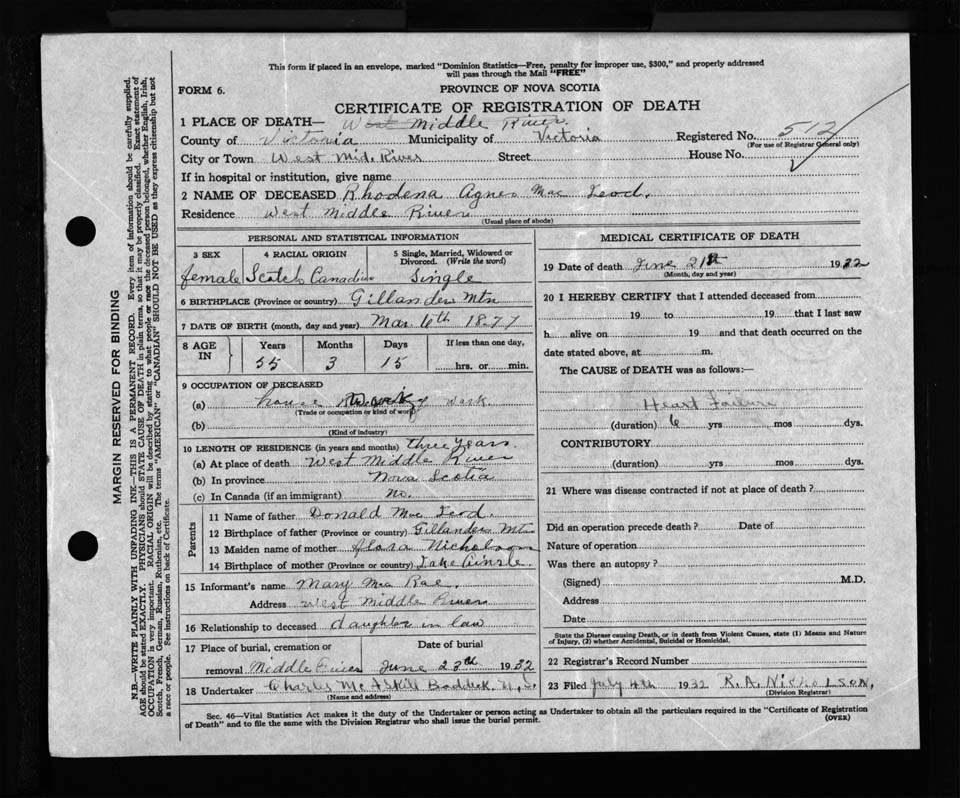 This form if placed in an envelope, marked "Dominion Statistics—Free, penalty for improper use, $300," and properly addressed
will pass through the Mail "FREE"
FORM 6.
PROVINCE OF NOVA SCOTIA
CERTIFICATE OF REGISTRATION OF DEATH
1 PLACE OF DEATH— West Middle River.
County of Victoria Municipality of Victoria Registered No. 512
(For use of Registrar General only)
City or Town West Mid. River Street House No.
If in hospital or institution, give name
2 NAME OF DECEASED Rhodena Agnes Mac Leod.
Residence West Middle River
(Usual place of abode)
PERSONAL AND STATISTICAL INFORMATION
3 SEX 4 RACIAL ORIGIN 5 Single, Married, Widowed or
Divorced. (Write the word)
female Scotch Canadian Single
6 BIRTHPLACE (Province or country) Gillander Mtn
7 DATE OF BIRTH (month, day and year) Mar. 6th 1877
8 AGE IN Years Months Days If less than one day,
55 3 15 hrs. or min.
9 OCCUPATION OF DECEASED
(a) house work
(Trade or occupation or kind of work)
(b)
(Kind of industry)
10 LENGTH OF RESIDENCE (in years and months) three years.
(a) At place of death West Middle River
(b) In province Nova Scotia
(c) In Canada (if an immigrant) no.
Parents
11 Name of father Donald Mac Leod.
12 Birthplace of father (Province or country) Gillander Mtn
13 Maiden name of mother Flora Nicholson
14 Birthplace of mother (Province or country) Lake Ainslie.
15 Informant's name Mary Mac Rae.
Address West Middle River
16 Relationship to deceased daughter in law
17 Place of burial, cremation or Date of burial
removal Middle River June 23rd 1932
18 Undertaker Charles McAskill Baddeck, N.S.
(Name and address)
MEDICAL CERTIFICATE OF DEATH
19 Date of death June 21st 1932
(Month, day and year)
20 I HEREBY CERTIFY that I attended deceased from
19 to 19 that I last saw
h alive on 19 and that death occurred on the
date stated above, at m.
The CAUSE of DEATH was as follows:—
Heart Failure
(duration) 6 yrs mos dys.
CONTRIBUTORY
(duration) yrs mos dys.
21 Where was disease contracted if not at place of death?
Did an operation precede death? Date of
Nature of operation
Was there an autopsy?
(Signed) M.D.
Address
Date
State the Disease causing Death, or in death from Violent Causes, state (1) Means and Nature
of Injury, (2) whether Accidental, Suicidal or Homicidal.
22 Registrar's Record Number
23 Filed July 4th 1932 R.A. Nicholson,
(Division Registrar)
Sec. 46—Vital Statistics Act makes it the duty of the Undertaker or person acting as Undertaker to obtain all the particulars required in the "Certificate of Registration
of Death" and to file the same with the Division Registrar who shall issue the burial permit.
(OVER)
MARGIN RESERVED FOR BINDING
N.B.—WRITE PLAINLY WITH UNFADING INK—THIS IS A PERMANENT RECORD. Every item of information should be carefully supplied.
AGE should be stated EXACTLY. PHYSICIANS should STATE CAUSE OF DEATH in plain terms, so that it may be properly classified. Exact statement of
OCCUPATION is very important. RACIAL ORIGIN will be described by stating to what people or race the deceased person belonged, whether English, Irish,
Scotch, French, German, Russian, Ruthenian, etc. The terms "AMERICAN" or "CANADIAN" SHOULD NOT BE USED as they express citizenship but not
a race or people. See instructions on back of Certificate.